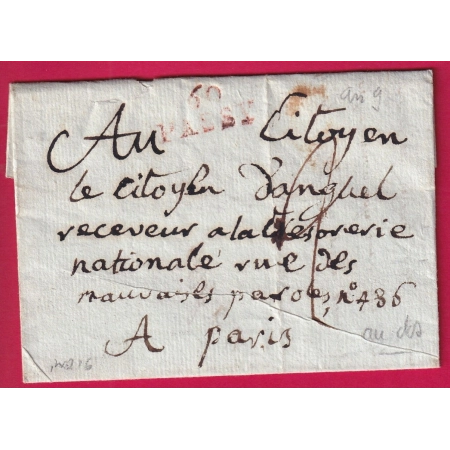 60
PASSY
an 9
Au Citoyen
le citoyen Danguel
receveur a la tresorerie
nationale rue des
mauvaises paroles, n° 436
A paris
au dos